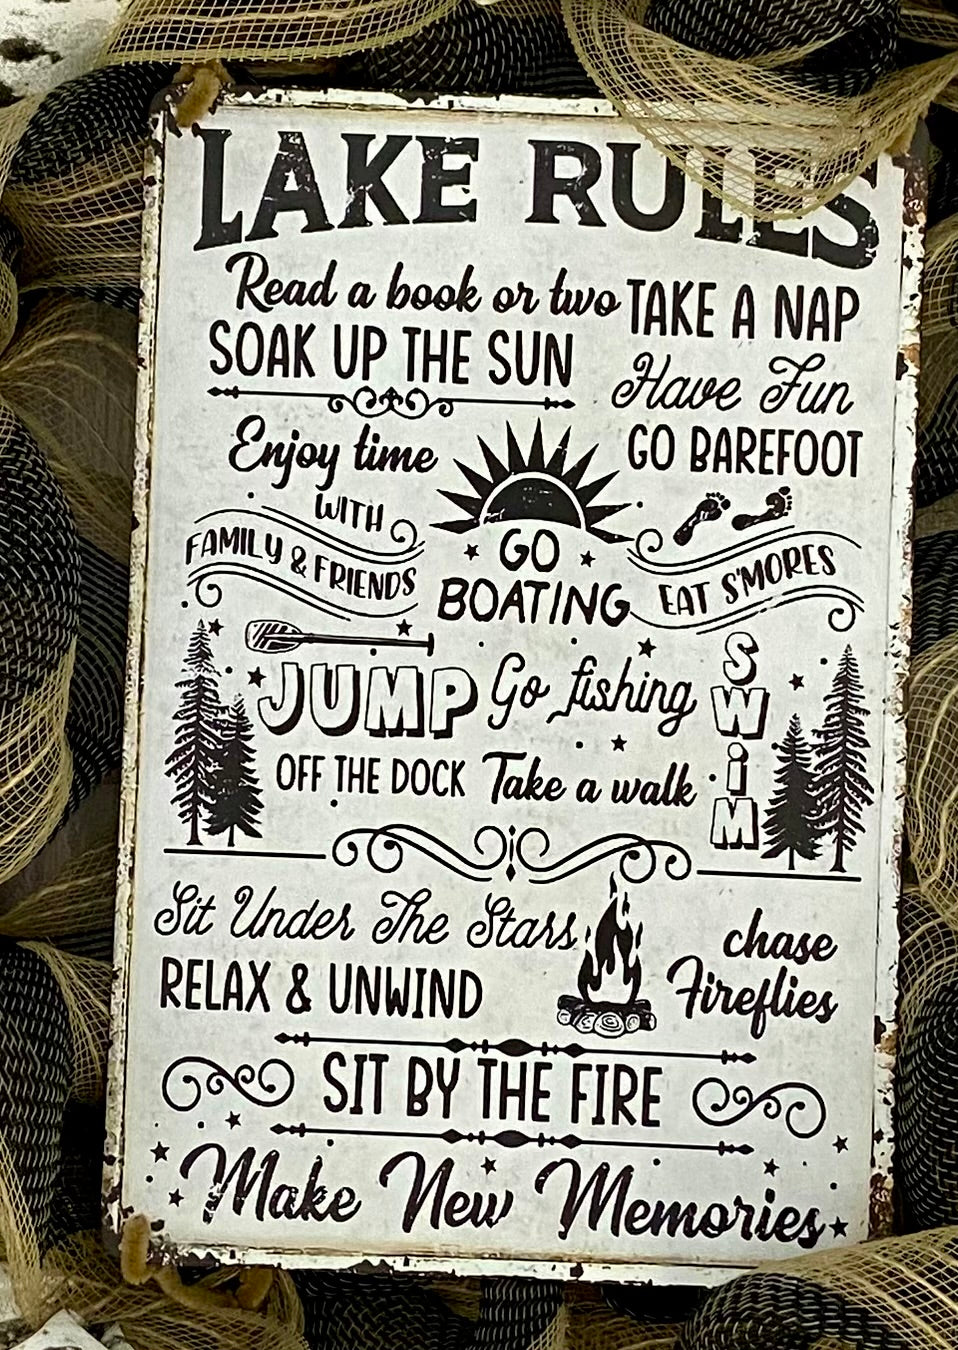 LAKE RULES
Read a book or two TAKE A NAP
SOAK UP THE SUN
Have Fun
Enjoy time
GO BAREFOOT
WITH
FAMILY & FRIENDS
GO
BOATING
EAT S'MORES
JUMP
OFF THE DOCK
Go fishing
Take a walk
SWiM
Sit Under The Stars
RELAX & UNWIND
chase
Fireflies
SIT BY THE FIRE
Make New Memories